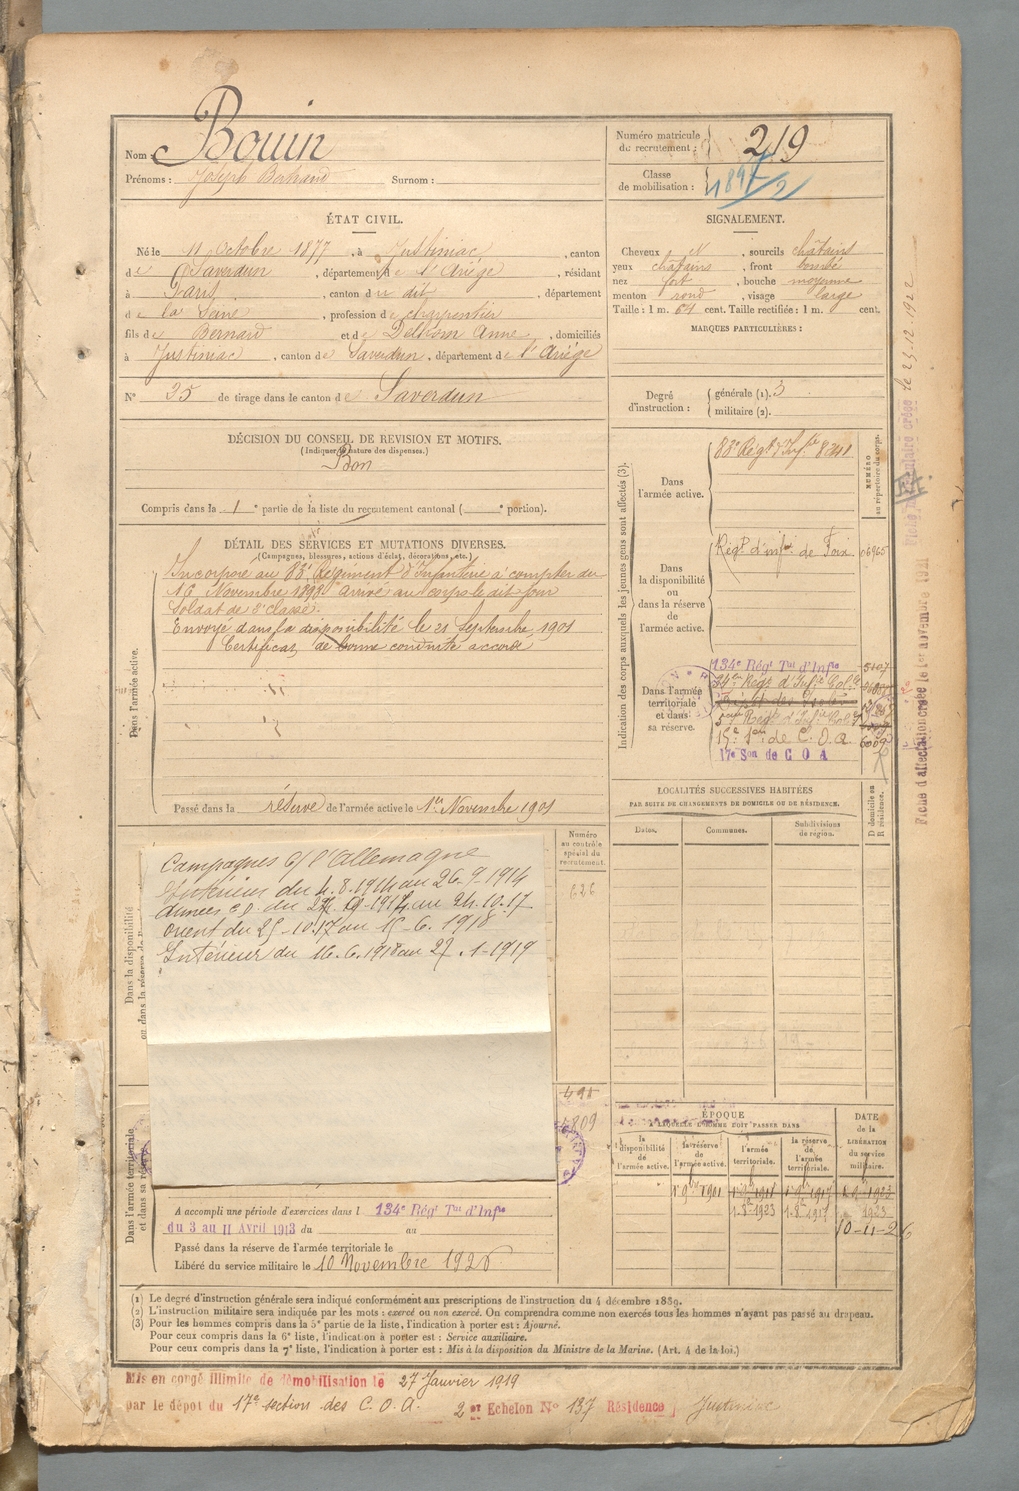 Nom : Bouin
Prénoms : Joseph Bertrand Surnom :
Numéro matricule du recrutement : 219
Classe de mobilisation : 1897/2
ÉTAT CIVIL.
Né le 11 Octobre 1877, à Justiniac, canton
de Saverdun, département de l'Ariège, résidant
à Paris, canton du dit, département
de la Seine, profession de charpentier
fils de Bernard et de Delhom Anne, domiciliés
à Justiniac, canton de Saverdun, département de l'Ariège
N° 35 de tirage dans le canton de Saverdun
SIGNALEMENT.
Cheveux N, sourcils châtains
yeux châtains, front bombé
nez fort, bouche moyenne
menton rond, visage large
Taille : 1 m. 64 cent. Taille rectifiée : 1 m. cent.
MARQUES PARTICULIÈRES :
Degré d'instruction : générale (1). 3
militaire (2).
DÉCISION DU CONSEIL DE REVISION ET MOTIFS.
(Indiquer la nature des dispenses.)
Bon
Compris dans la 1e partie de la liste du recrutement cantonal ( e portion).
DÉTAIL DES SERVICES ET MUTATIONS DIVERSES.
(Campagnes, blessures, actions d'éclat, décorations, etc.)
Dans l'armée active.
Incorporé au 83e Régiment d'Infanterie à compter du
16 Novembre 1898 arrivé au corps le dit jour
Soldat de 2e classe.
Envoyé dans la disponibilité le 21 Septembre 1901
Certificat de bonne conduite accordé
Passé dans la réserve de l'armée active le 1er Novembre 1901
Indication des corps auxquels les jeunes gens sont affectés (3).
NUMÉRO au répertoire du corps.
Dans l'armée active.
83e Régt d'Infie 8241
Dans la disponibilité ou dans la réserve de l'armée active.
Régt d'infie de Foix 06965
Dans l'armée territoriale et dans sa réserve.
134e Régt Tal d'Infie 5107
Régt d'Infie Colle
5me Régt d'Infie Cole
15e Son de C.O.A. 6009
17e Son de C O A
LOCALITÉS SUCCESSIVES HABITÉES
PAR SUITE DE CHANGEMENTS DE DOMICILE OU DE RÉSIDENCE.
Dates. Communes. Subdivisions de région. D domicile ou R résidence.
Dans la disponibilité
ou dans la réserve de l'
Numéro au contrôle spécial du recrutement.
626
Campagnes c/ l'Allemagne
Intérieur du 4.8.1914 au 26-9-1914
Armées du 27.9-1914 au 24.10.17
Orient du 25-10.17 au 15-6.1918
Intérieur du 16.6.1918 au 27.1-1919
491
4809
Dans l'armée territoriale
et dans sa réserve
A accompli une période d'exercices dans l 134e Régt Tal d'Infie
du 3 au 11 Avril 1913 du au
Passé dans la réserve de l'armée territoriale le
Libéré du service militaire le 10 Novembre 1926
ÉPOQUE
A LAQUELLE L'HOMME DOIT PASSER DANS
la disponibilité de l'armée active. la réserve de l'armée active. l'armée territoriale. la réserve de l'armée territoriale.
DATE de la LIBÉRATION du service militaire.
1er 9bre 1901
10-11-26
(1) Le degré d'instruction générale sera indiqué conformément aux prescriptions de l'instruction du 4 décembre 1889.
(2) L'instruction militaire sera indiquée par les mots : exercé ou non exercé. On comprendra comme non exercés tous les hommes n'ayant pas passé au drapeau.
(3) Pour les hommes compris dans la 5e partie de la liste, l'indication à porter est : Ajourné.
Pour ceux compris dans la 6e liste, l'indication à porter est : Service auxiliaire.
Pour ceux compris dans la 7e liste, l'indication à porter est : Mis à la disposition du Ministre de la Marine. (Art. 4 de la loi.)
Mis en congé illimité de démobilisation le 27 Janvier 1919
par le dépôt du 17e section des C.O.A. 2 er Echelon N° 137 Résidence Justiniac
Fiche d'affectation créée le 1er novembre 1921
Fiche matriculaire créée le 23.12.1922